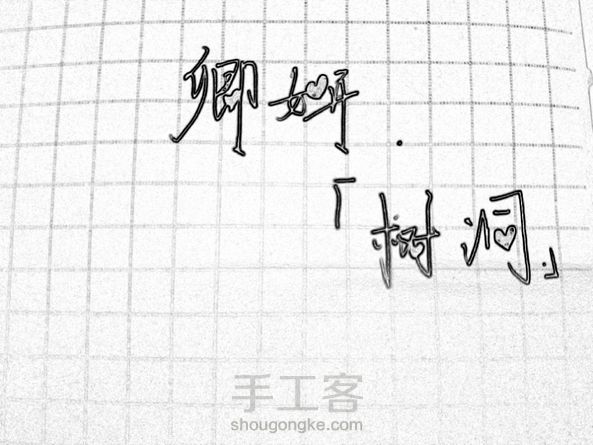 卿妍.
「树洞.」
手工客
shougongke.com